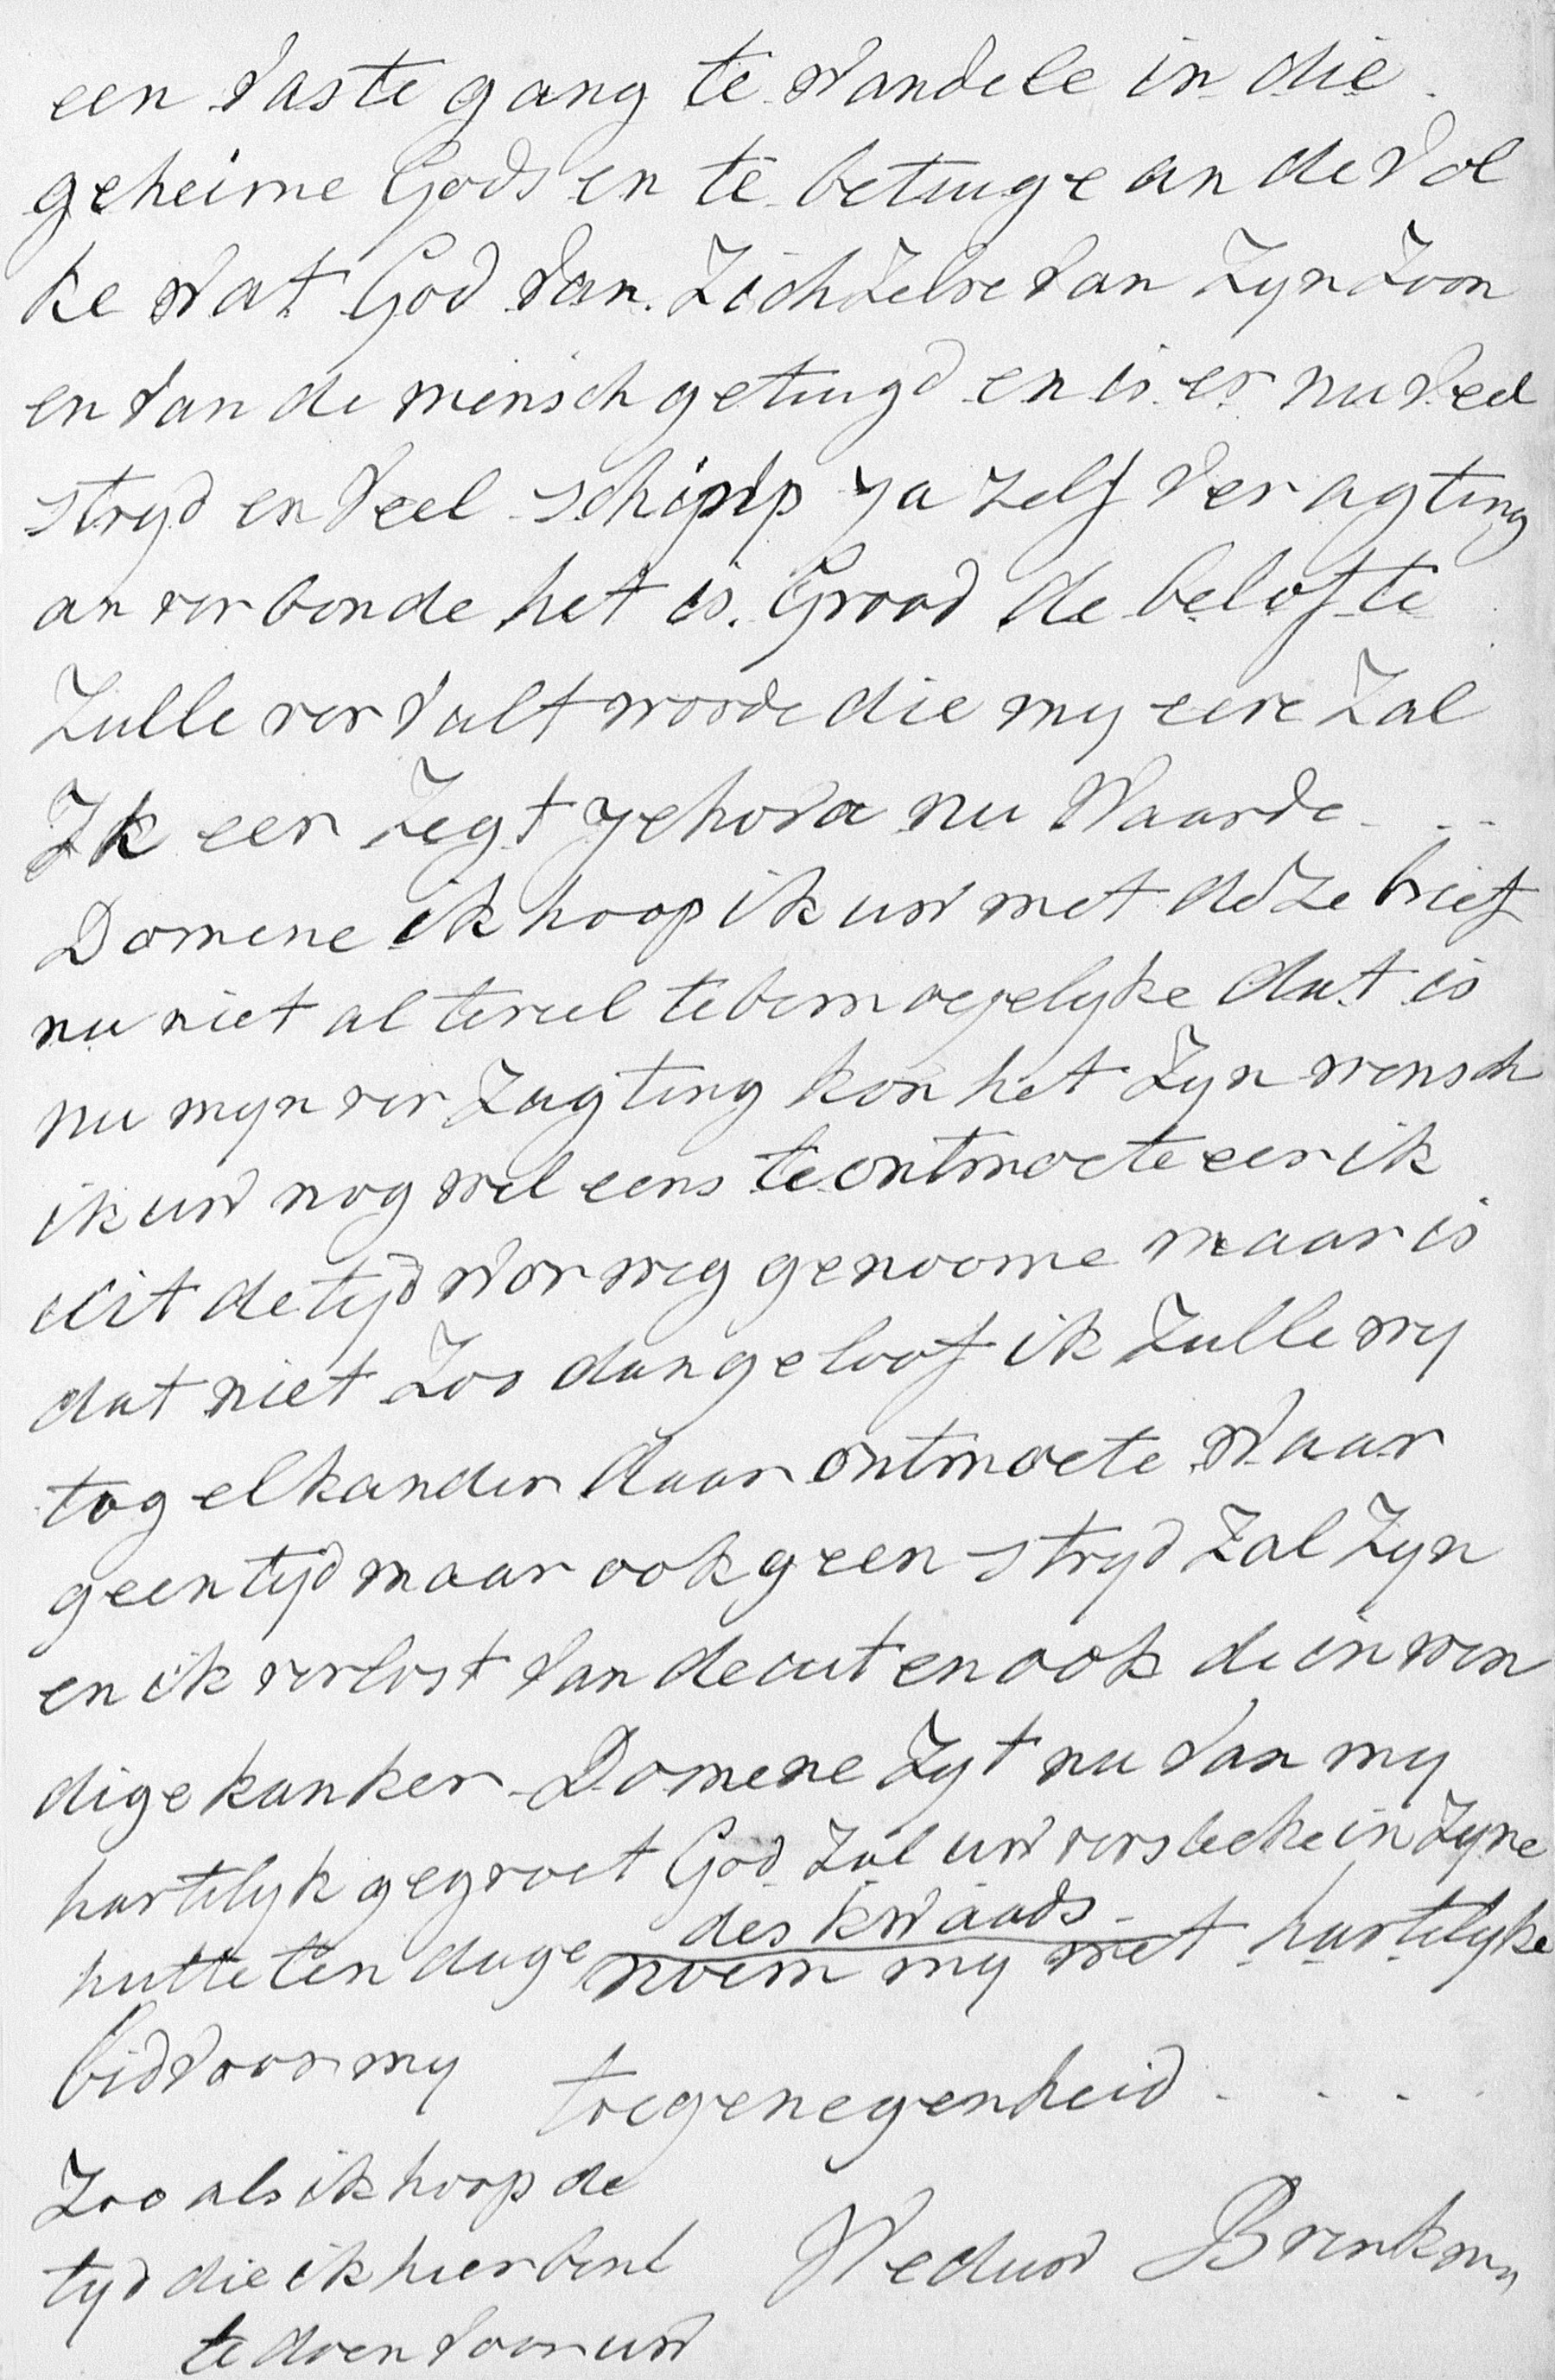 een vaste gang te wandele in die
geheime Gods en te betuuge an de vol
ke wat God van Zich Zelve van Zyn Zoon
en van de mensch getuugd en is er nu veel
stryd en veel schimp ya zelf veragting
an verbonde het is Grood de belofte
Zulle vervult worde die my eere Zal
Ik eer Zegt yehova nu Waarde
Domene ik hoop ik uw met deze brief
nu niet al teveel te bemoegelyke dat is
nu myn verZugting kon het Zyn wensch
ik uw nog wel eens te ontmoete eer ik
uit de tyd wor weg genoome maar is
dat niet Zoo dan geloof ik Zulle wy
tog elkander daar ontmoete Waar
geen tyd maar ook geen stryd Zal Zyn
en ik verlost van de uit en ook de inwen
dige kanker Domene Zyt nu van my
hartelyk gegroet God Zal uw versteke in Zyne
hutte ten dage des kwaads
noem my met hartelyke
bid voor my toegenegenheid
Zoo als ik hoop de
tyd die ik hier bent Weduw Brenkman
te doen voor uw